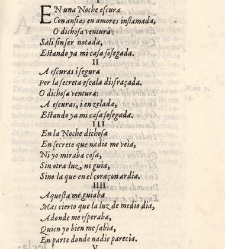 I
EN una Noche escura
Con ansias en amores inflamada,
O dichosa ventura
Sali sin ser notada,
Estando ya mi casa sosegada.
II
A escuras i segura
Por la secreta escala disfraçada,
O dichosa ventura:
A escuras, i en zelada,
Estando ya mi casa sosegada.
III
En la Noche dichosa
En secreto que nadie me vèia,
Ni yo miraba cosa,
Sin otra luz, ni guia,
Sino la que en el corazon ardia.
IIII
Aquesta me guiaba
Mas cierto que la luz de medio dia,
A donde me esperaba,
Quien yo bien me sabia,
En parte donde nadie parecia.
V